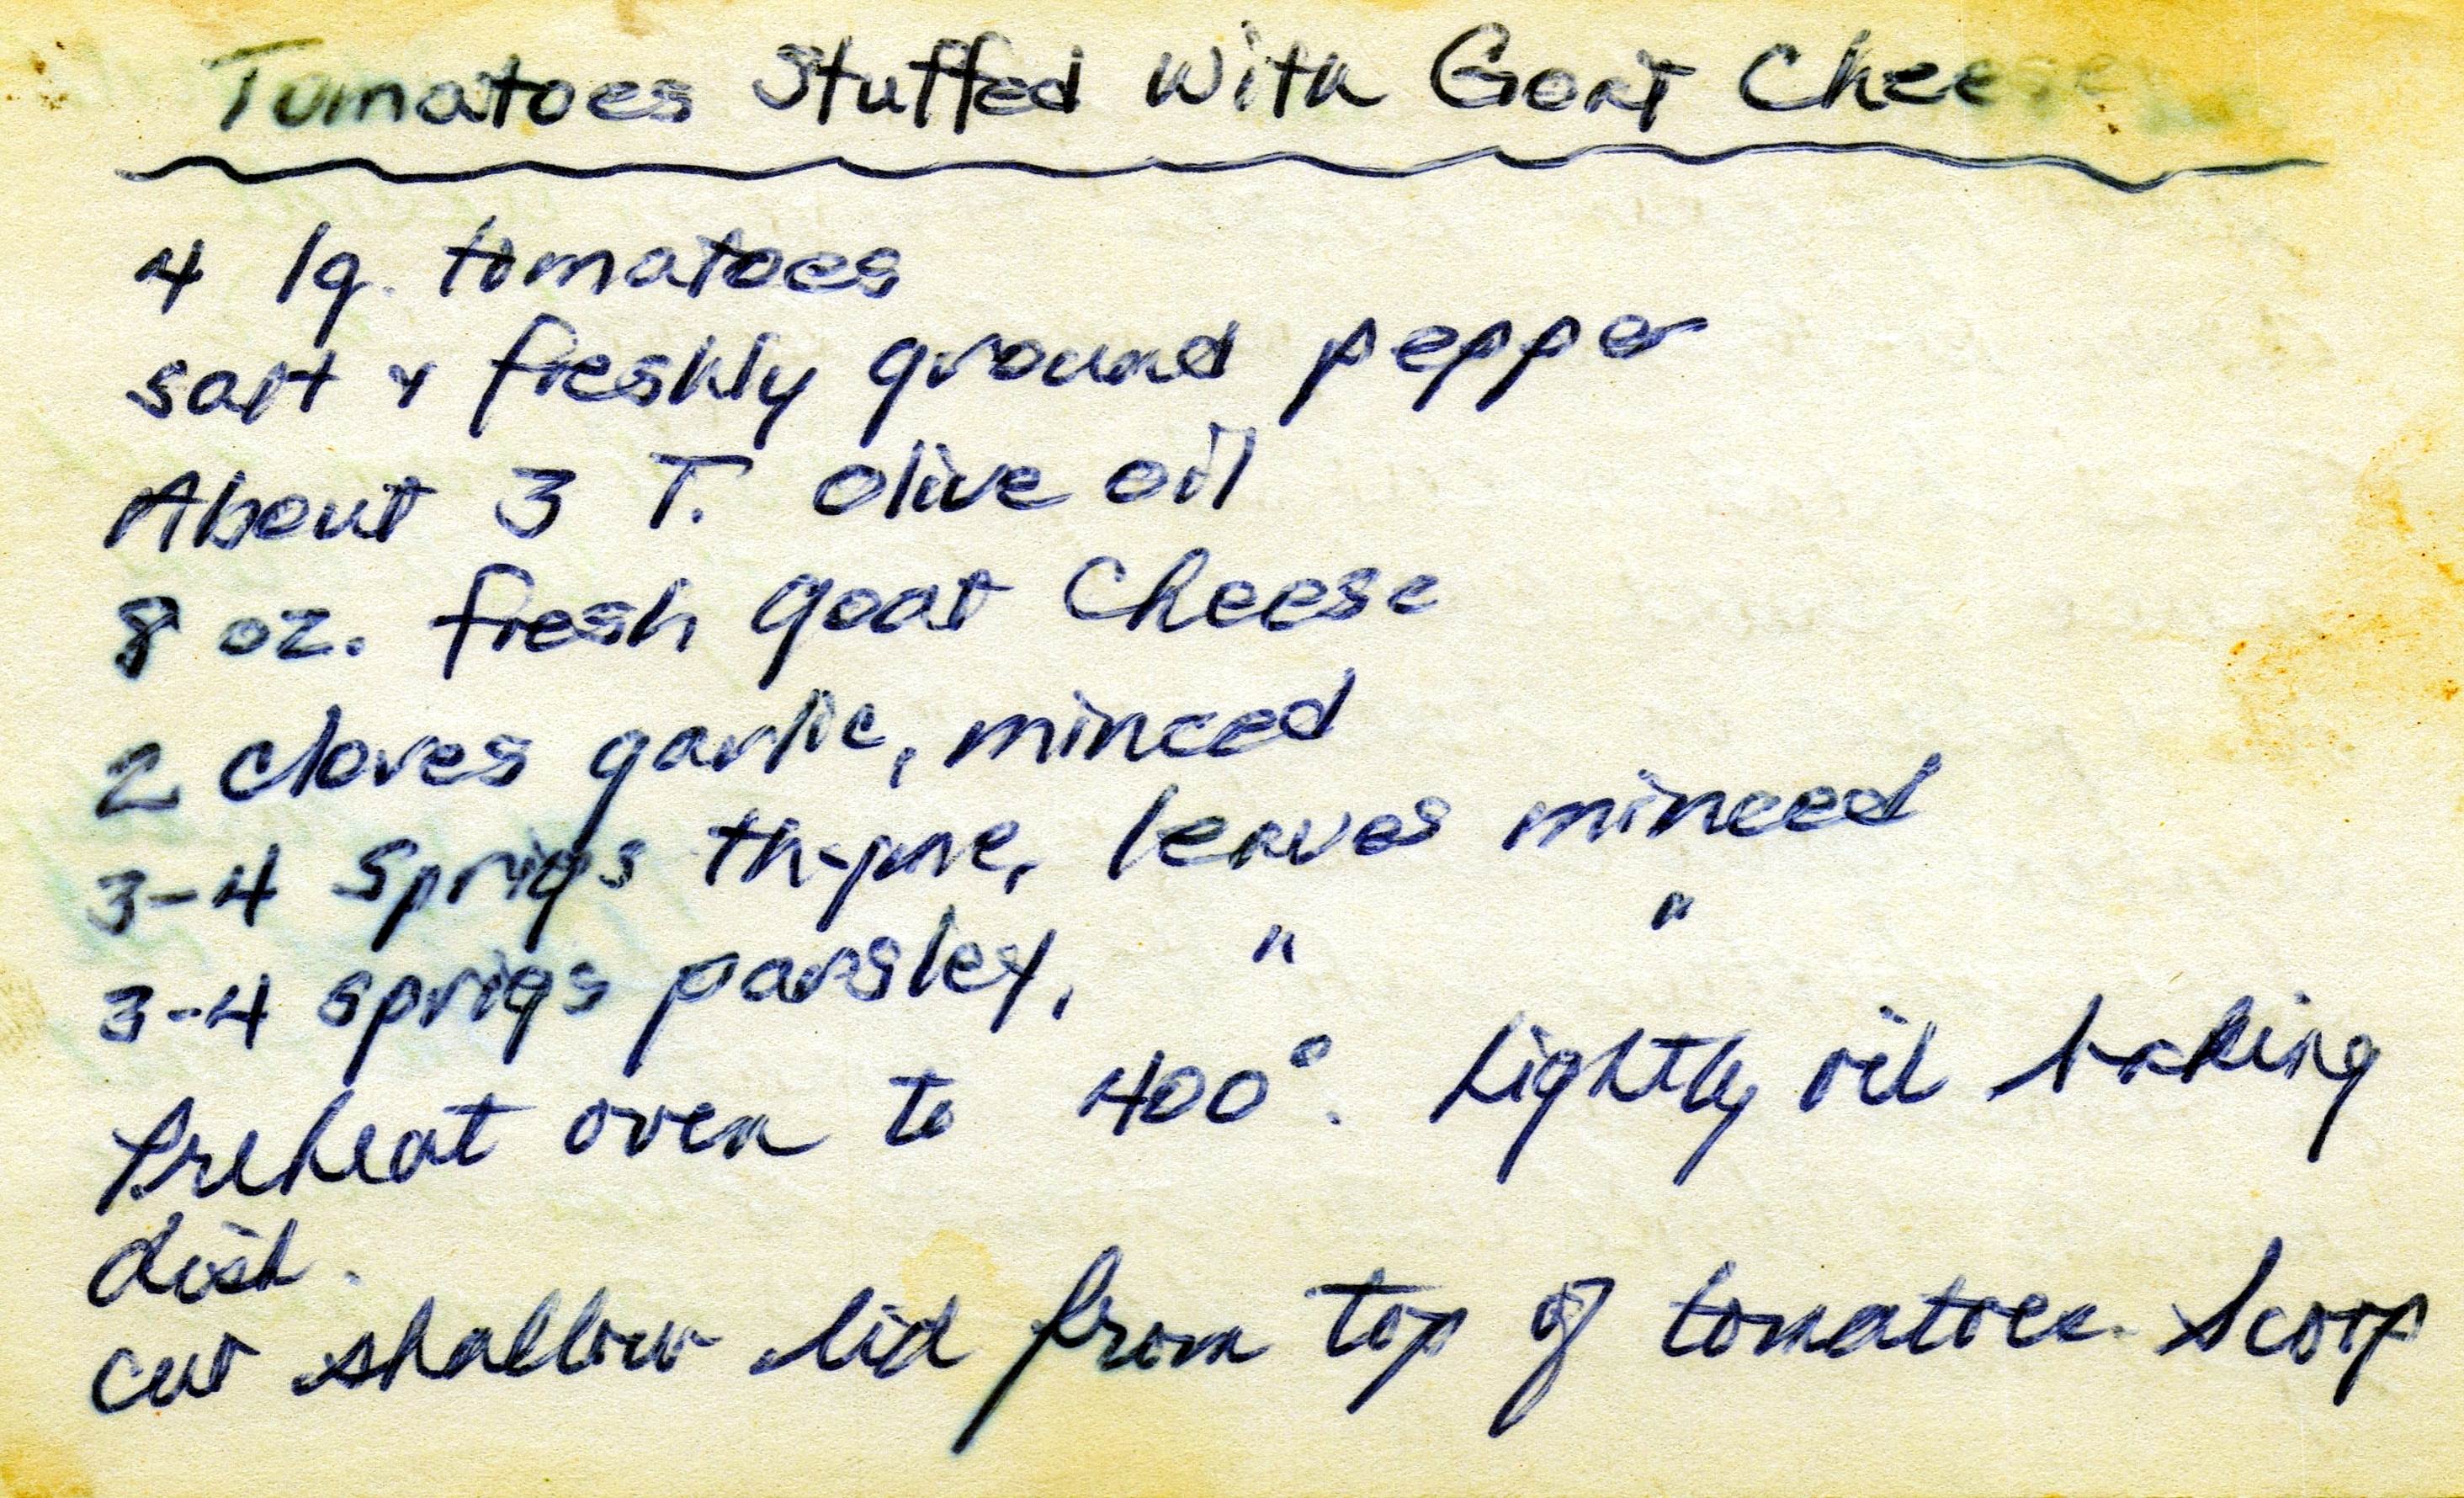 Tomatoes Stuffed With Goat Cheese
4 lg. tomatoes
salt & freshly ground pepper
About 3 T. olive oil
8 oz. fresh goat Cheese
2 cloves garlic, minced
3-4 sprigs thyme, leaves minced
3-4 sprigs parsley, " "
Preheat oven to 400°. Lightly oil baking
dish.
Cut shallow lid from top of tomatoes. Scoop